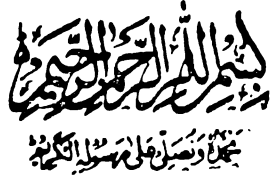 بِسْمِ اللهِ الرَّحْمٰنِ الرَّحِيْمِ
نحمده ونصلى على رسوله الكريم